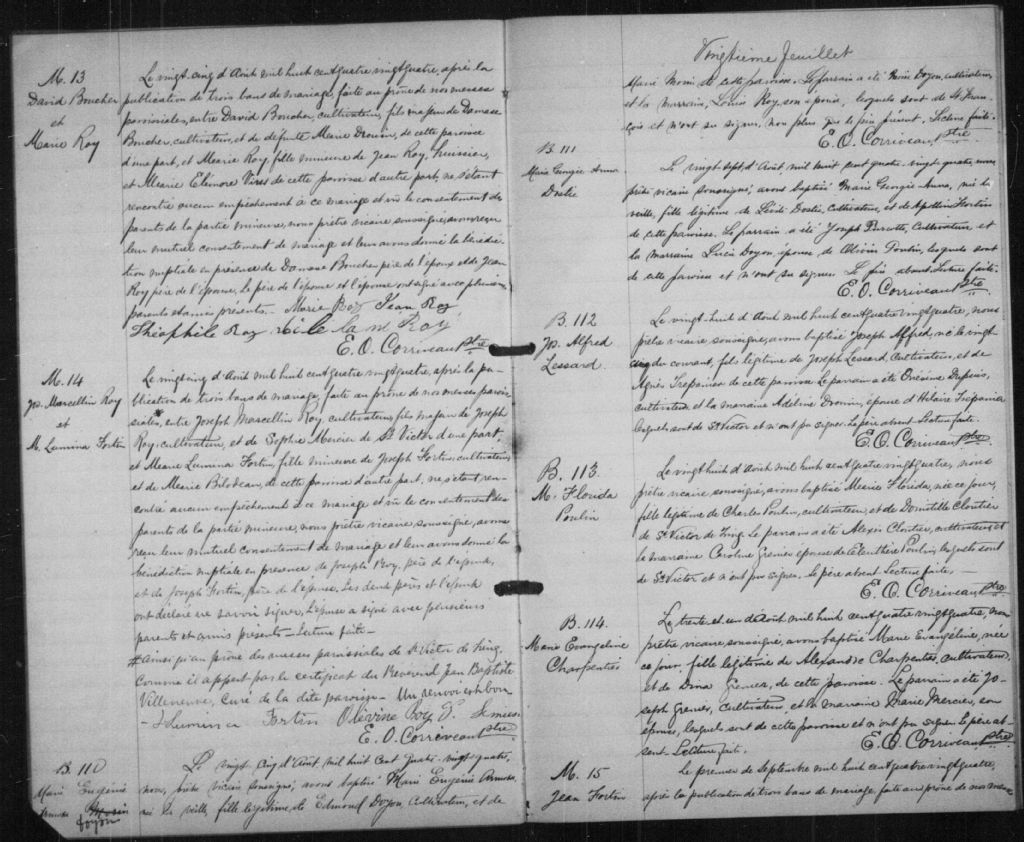 M. 13
David Boucher
et
Marie Roy
Le vingt-cinq d'Août mil huit cent quatre vingt quatre, après la
publication de trois bans de mariage, faite au prône de nos messes
paroissiales, entre David Boucher, cultivateur, fils majeur de Damase
Boucher, cultivateur, et de défunte Marie Drouin, de cette paroisse
d'une part, et Marie Roy, fille mineure de Jean Roy, huissier,
et Marie Elénore Viret de cette paroisse d'autre part, ne s'étant
rencontré aucun empêchement à ce mariage et vu le consentement des
parents de la partie mineure, nous prêtre vicaire soussigné, avons reçu
leur mutuel consentement de mariage et leur avons donné la bénédic-
tion nuptiale en présence de Damase Boucher père de l'époux et de Jean
Roy père de l'épouse, le père de l'épouse et l'épouse ont signé avec plusieurs
parents et amis présents. Marie Roy Jean Roy
Théophile Roy Roy
E. O. Corriveau Ptre
M. 14
Jos. Marcellin Roy
et
M. Lumina Fortin
Le vingt cinq d'Août mil huit cent quatre vingt quatre, après la pu-
blication de trois bans de mariage, faite au prône de nos messes parois-
siales, entre Joseph Marcellin Roy, cultivateur, fils majeur de Joseph
Roy, cultivateur, et de Sophie Mercier de St Victor d'une part,
et Marie Lumina Fortin, fille mineure de Joseph Fortin, cultivateur,
et de Marie Bilodeau, de cette paroisse d'autre part, ne s'étant ren-
contré aucun empêchement à ce mariage et vu le consentement des
parents de la partie mineure, nous prêtre vicaire, soussigné, avons
reçu leur mutuel consentement de mariage et leur avons donné la
bénédiction nuptiale en présence de Joseph Roy, père de l'époux,
et de Joseph Fortin, père de l'épouse. Les deux pères et l'époux
ont déclaré ne savoir signer, L'épouse a signé avec plusieurs
parents et amis présents — Lecture faite —
# Ainsi qu'au prône des messes paroissiales de St Victor de Tring,
Comme il appert par le certificat du Révérend Jean Baptiste
Villeneuve, Curé de la dite paroisse — Un renvoi est bon
— Lumina Fortin Olévine Roy
E. O. Corriveau Ptre
B. 110
Marie Eugénie
Doyon
Le vingt Cinq d'Août mil huit cent quatre vingt quatre,
nous, prêtre vicaire soussigné, avons baptisé Marie Eugénie
née la veille, fille légitime de Edmond Doyon, Cultivateur, et de
Vingtième feuillet
Marie Morin de cette paroisse. Le parrain a été Doyon, cultivateur,
et la marraine, Louise Roy, son épouse, lesquels sont de St Fran-
çois et n'ont su signer, non plus que le père présent. Lecture faite.
E. O. Corriveau, Ptre
B. 111
Marie Georgie Anna
Dostie
Le vingt sept d'Août, mil huit cent quatre-vingt quatre, nous
prêtre vicaire soussigné, avons baptisé Marie Georgie Anna, née la
veille, fille légitime de Dostie, Cultivateur, et de Apolline Fortin
de cette paroisse. Le parrain a été Joseph Cultivateur, et
la marraine Doyon, épouse de Poulin, lesquels sont
de cette paroisse et n'ont su signer. Le père absent. Lecture faite.
E. O. Corriveau Ptre
B. 112
Jos. Alfred
Lessard
Le vingt-huit d'Août mil huit cent quatre vingt quatre, nous
prêtre vicaire, soussigné, avons baptisé Joseph Alfred, né le vingt-
du courant, fils légitime de Joseph Lessard, Cultivateur, et de
Agnès Trépanier de cette paroisse. Le parrain a été Onésime Dupuis,
cultivateur et la marraine Adéline Drouin, épouse d'Hilaire Trépanier
lesquels sont de St Victor et n'ont pu signer. Le père absent. Lecture faite.
E. O. Corriveau, Ptre
B. 113
M. Florida
Poulin
Le vingt huit d'Août mil huit cent quatre vingt quatre, nous
prêtre vicaire, soussigné, avons baptisé Marie Florida, née ce jour,
fille légitime de Charles Poulin, cultivateur, et de Domitille Cloutier
de St Victor de Tring. Le parrain a été Alexis Cloutier, cultivateur, et
la marraine Caroline Grenier épouse de Eleuthère Poulin, lesquels sont
de St Victor et n'ont pu signer. Le père absent Lecture faite. —
E. O. Corriveau Ptre
B. 114.
Marie Evangeline
Charpentier
Le trente et un d'Août mil huit cent quatre vingt quatre, nous
prêtre, vicaire, soussigné, avons baptisé Marie Evangéline, née
ce jour, fille légitime de Alexandre Charpentier, cultivateur,
et de Dina Grenier, de cette paroisse. Le parrain a été Jo-
seph Grenier, Cultivateur, et la marraine Marie Mercier, son
épouse, lesquels sont de cette paroisse et n'ont pu signer. Le père ab-
sent. Lecture faite.
E. O. Corriveau Ptre
M. 15
Jean Fortin
Le premier de Septembre mil huit cent quatre vingt quatre,
après la publication de trois bans de mariage, faite au prône de nos messes